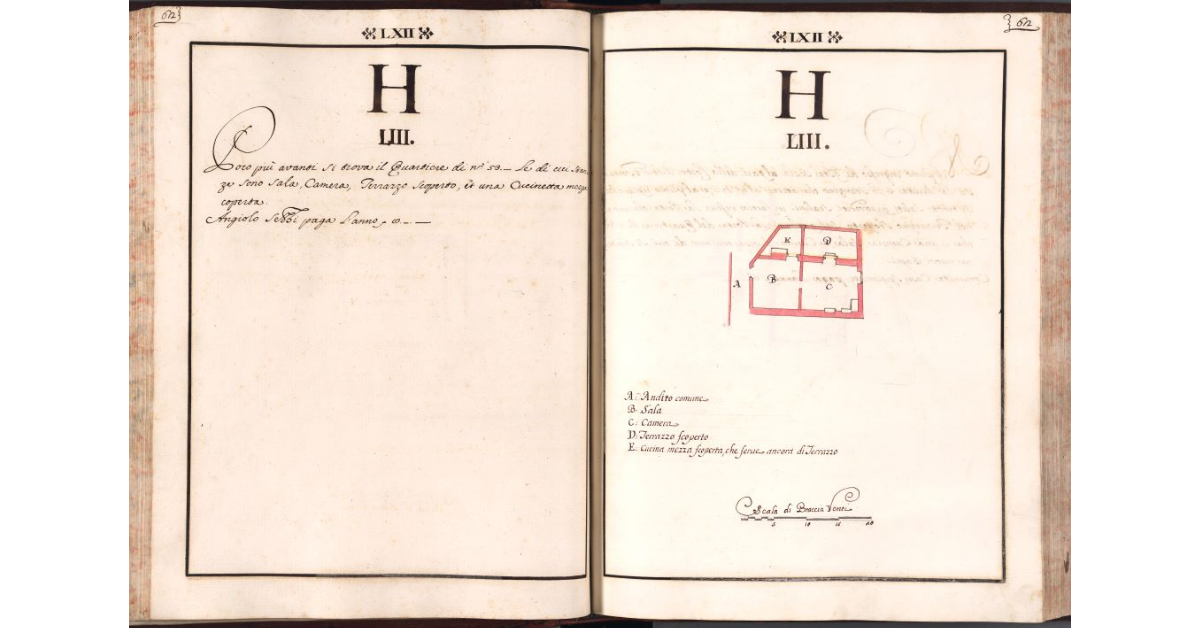 62
LXII
H
LIII.
Poco più avanti si trova il Quartiere di nº 53. Le di cui Stan-
ze sono Sala, Camera, Terrazzo scoperto, et una Cucinetta mezza
coperta.
Angiolo paga l'anno
LXII
62
H
LIII.
K D
A B C
A. Andito comune
B. Sala
C. Camera
D. Terrazzo scoperto
E. Cucina mezza scoperta, che serve ancora di Terrazzo
Scala di Braccia Venti
5 10 15 20